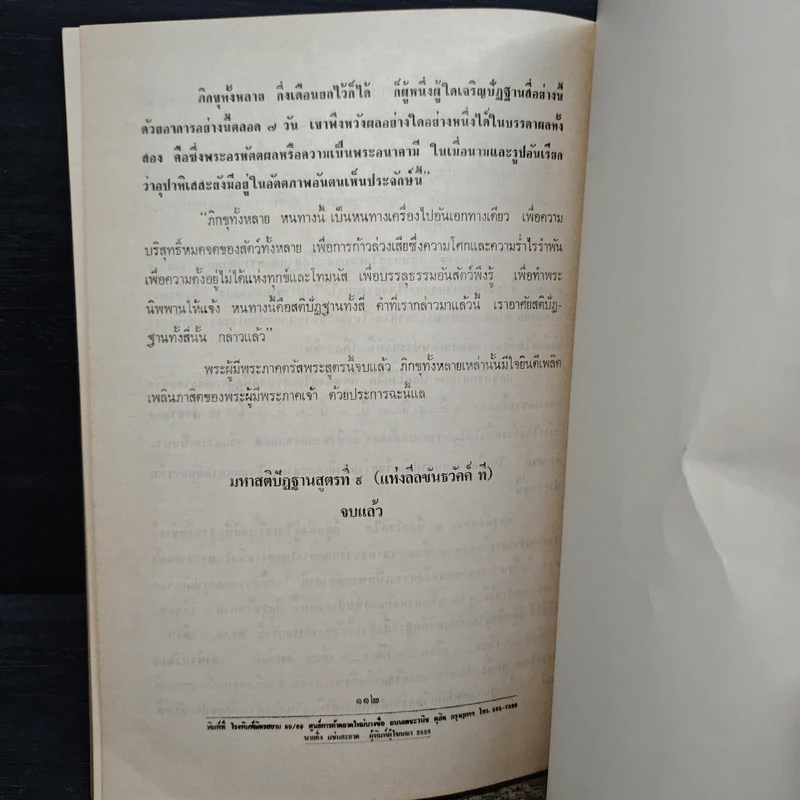 ภิกษุทั้งหลาย กึ่งเดือนยกไว้ก็ได้ ก็ผู้หนึ่งผู้ใดเจริญปัฏฐานสี่อย่างนี้
ด้วยอาการอย่างนี้ตลอด ๗ วัน เขาพึงหวังผลอย่างใดอย่างหนึ่งได้ในบรรดาผลทั้ง
สอง คือซึ่งพระอรหัตตผลหรือความเป็นพระอนาคามี ในเมื่อนามและรูปอันเรียก
ว่าอุปาทิเสสะยังมีอยู่ในอัตตภาพอันตนเห็นประจักษ์นี้"
"ภิกขุทั้งหลาย หนทางนี้ เป็นหนทางเครื่องไปอันเอกทางเดียว เพื่อความ
บริสุทธิ์หมดจดของสัตว์ทั้งหลาย เพื่อการก้าวล่วงเสียซึ่งความโศกและความร่ำไรรำพัน
เพื่อความตั้งอยู่ไม่ได้แห่งทุกข์และโทมนัส เพื่อบรรลุธรรมอันสัตว์พึงรู้ เพื่อทำพระ
นิพพานให้แจ้ง หนทางนี้คือสติปัฏฐานทั้งสี่ คำที่เรากล่าวมาแล้วนี้ เราอาศัยสติปัฏ-
ฐานทั้งสี่นั้น กล่าวแล้ว"
พระผู้มีพระภาคตรัสพระสูตรนี้จบแล้ว ภิกขุทั้งหลายเหล่านั้นมีใจยินดีเพลิด
เพลินภาสิตของพระผู้มีพระภาคเจ้า ด้วยประการฉะนี้แล
มหาสติปัฏฐานสูตรที่ ๙ (แห่งลีลขันธวัคค์ ที)
จบแล้ว
๑๑๒
พิมพ์ที่ โรงพิมพ์มิตรสยาม ศูนย์การค้าตลาดใหม่บางซื่อ ถนนเตชะวนิช ดุสิต กรุงเทพฯ โทร.
ผู้พิมพ์ผู้โฆษณา